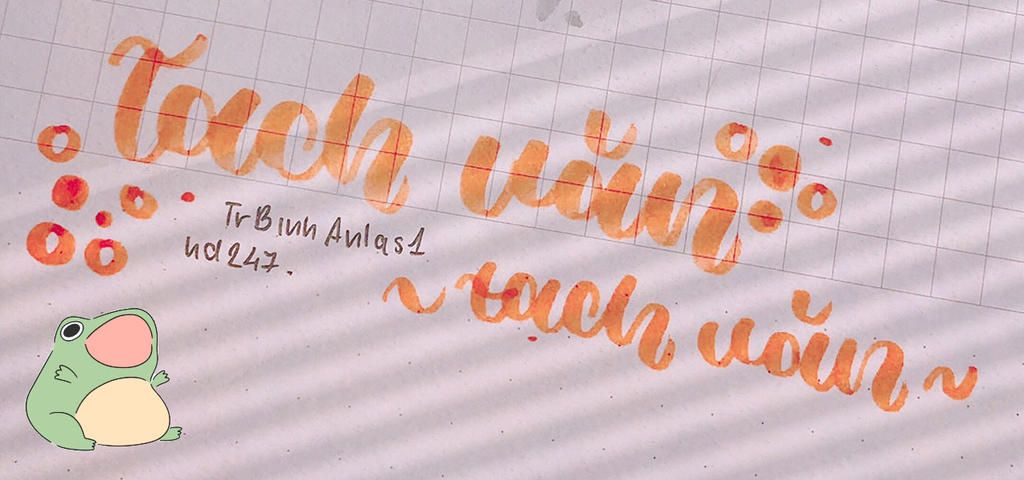 Tach văn
TrBinhAnlas1
nd247.
~ tach văn ~